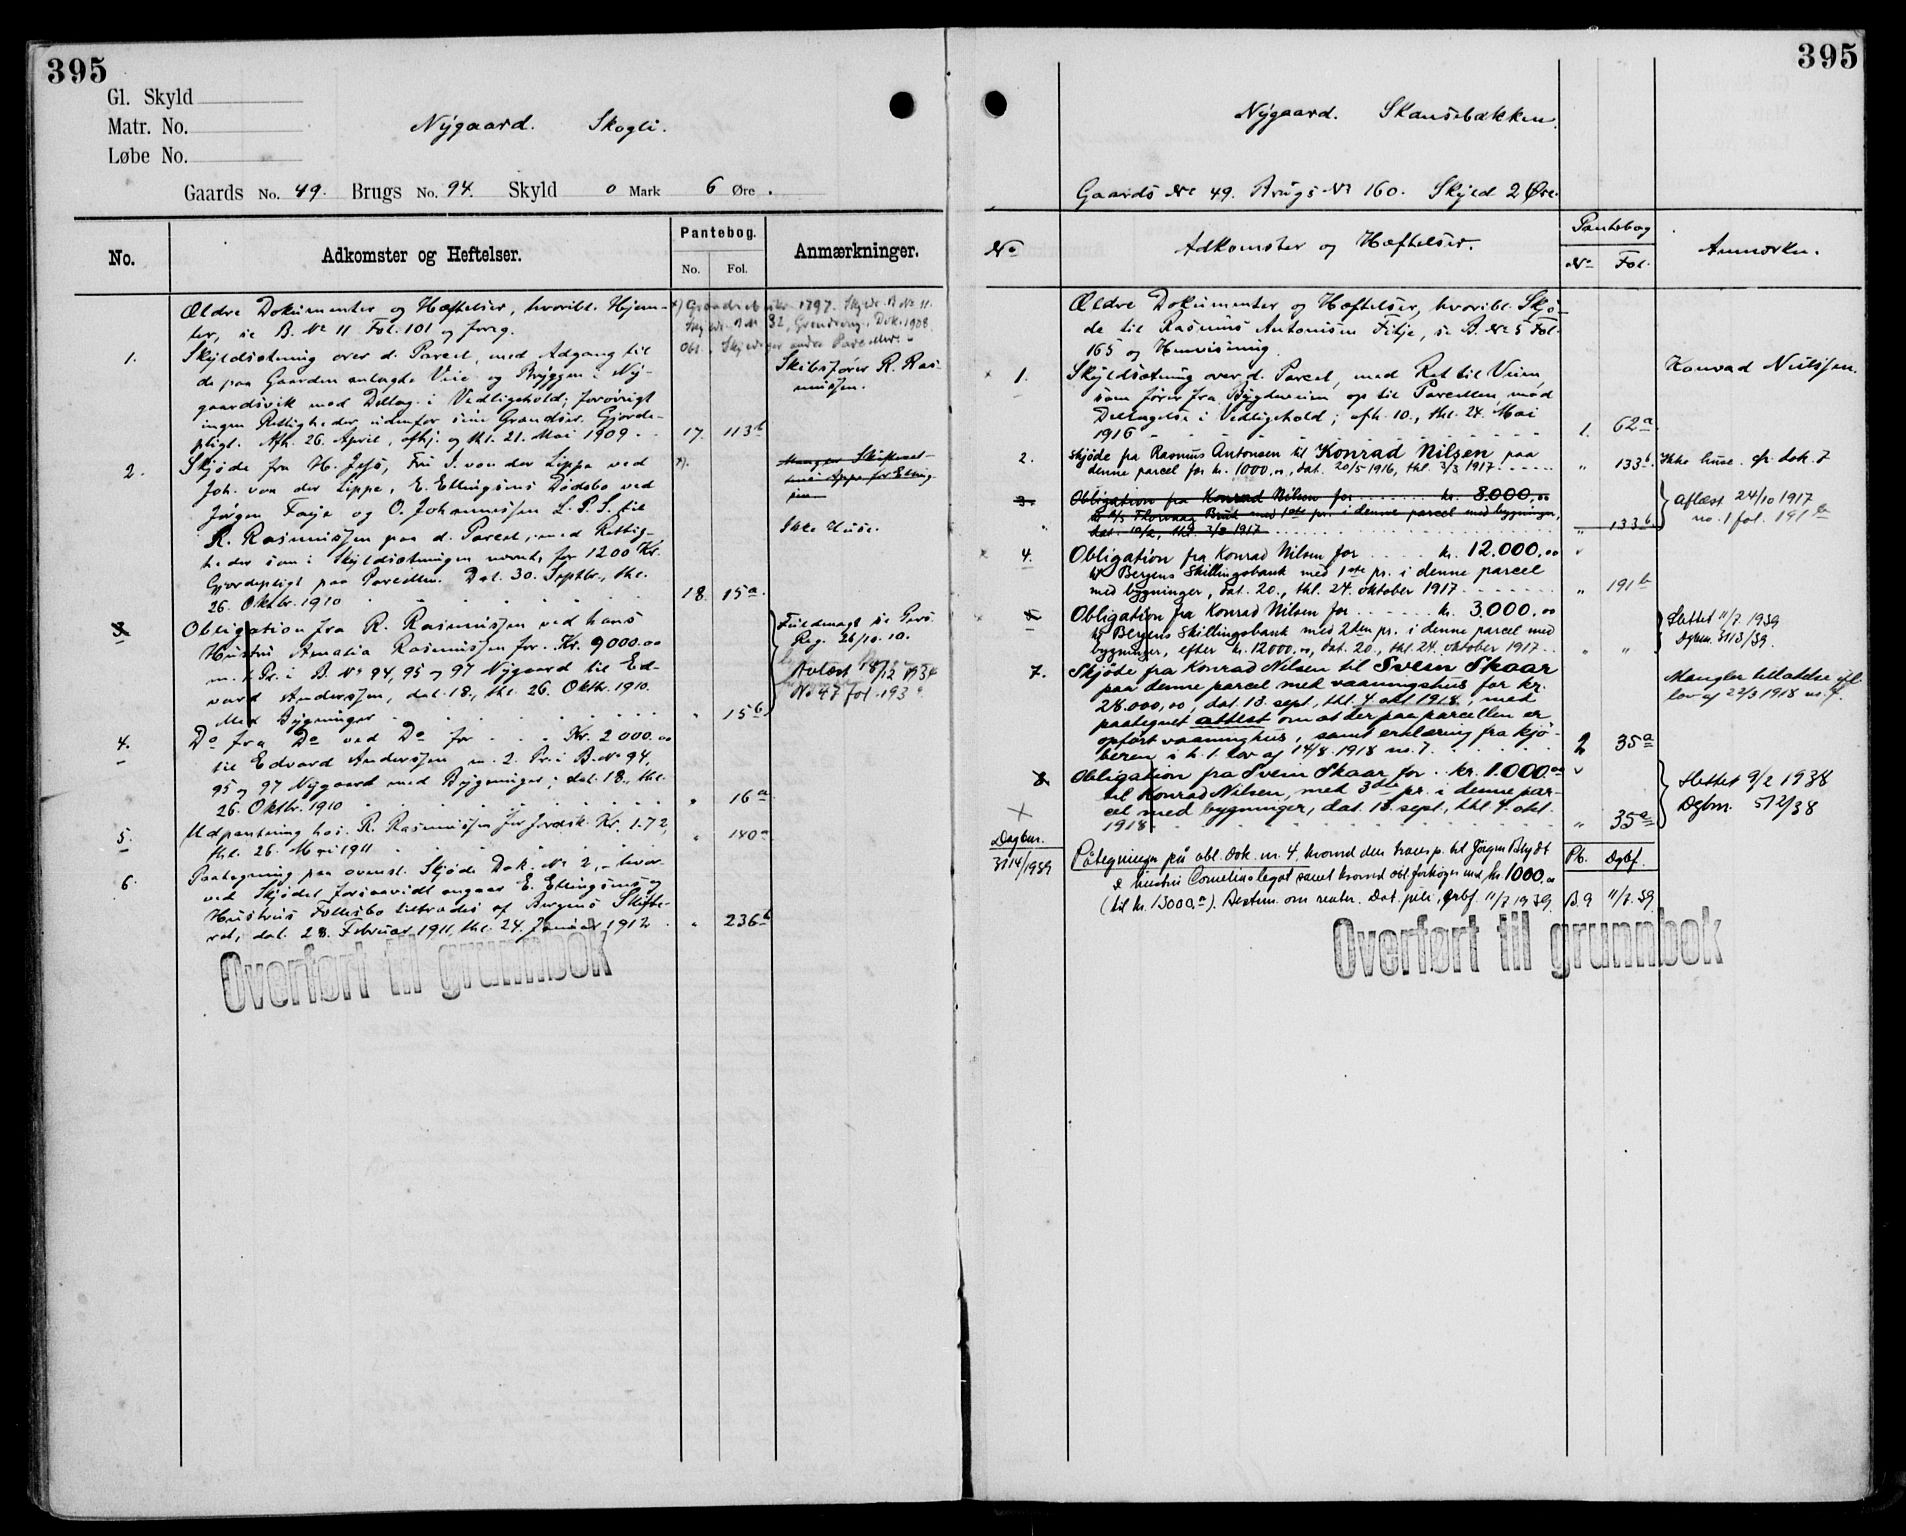 395
Gl. Skyld
Matr. No.
Løbe No.
Nygaard. Skogli.
Gaards No. 49. Brugs No. 94. Skyld 0 Mark 6 Øre.
No.
Adkomster og Heftelser.
Pantebog.
No. Fol.
Anmærkninger.
Ældre Dokumenter og Hæftelser, hvoribl. Hjem-
ler, se B. No 11 Fol. 101 og forrg.
1. Skyldsætning over d. Parcel, med Adgang til
de paa Gaarden anlagte Veie og Bryggen i Ny-
gaardsvik med Deltag. i Vedligehold; forøvrigt
ingen Rettigheder udenfor sine Grændser. Gjærde-
pligt. Afh. 26. April, afhj. og thl. 21. Mai 1909 . .
17. 113b
Skibsfører R. Ras-
mussen.
2. Skjøde fra H. Jess, Fru S. von der Lippe ved
Joh. von der Lippe, E. Ellingsens Dødsbo ved
Jørgen Faye og O. Johannessen L. P. S. til
R. Rasmussen paa d. Parcel, med Rettig-
heder som i Skyldsætningen nævnt, for 1200 Kr.
Gjærdepligt paa Parcellen. Dat. 30. Septbr., thl.
26. Oktbr. 1910
18. 15a
Ikke Huse.
3. Obligation fra R. Rasmussen ved hans
Hustru Amalia Rasmussen for Kr. 9000.00
m. 1. Pr. i B. No 94, 95 og 97 Nygaard til Ed-
vard Anderssen, dat. 18., thl. 26. Oktbr. 1910.
Med Bygninger
" 15b
Fuldmagt se Gers.
Reg. 26/10-10.
Avlæst 18/12 1934
No 47 fol. 193
4. Do fra Do ved Do for . . . Kr. 2000.00
til Edvard Anderssen m. 2. Pr. i B. No 94,
95 og 97 Nygaard med Bygninger; dat. 18., thl.
26. Oktbr. 1910
" 16a
5. Udpantning hos R. Rasmussen for Jordsk. Kr. 1.72,
thl. 26. Mai 1911
" 140a
6. Paategning paa ovenst. Skjøde Dok. No 2, hvor-
ved Skjødet forsaavidt angaar E. Ellingsens og
Hustrus Fællesbo tiltrædes af Bergens Skifte-
ret, dat. 28. Februar 1911, thl. 24. Januar 1912
" 236b
Overført til grunnbok
395
Nygaard. Skansebækken.
Gaards No 49. Brugs No 160. Skyld 2 Øre.
No
Adkomster og Hæftelser.
Pantebog
No Fol.
Anmærkn.
Ældre Dokumenter og Hæftelser, hvoribl. Skjø-
de til Rasmus Antonisen Fitje, se B. No 5 Fol.
165 og Henvisning.
1. Skyldsætning over d. Parcel, med Ret til Veien
som fører fra Bygdeveien op til Parcellen, mod
Deltagelse i Vedligehold; afh. 10., thl. 24. Mai
1916
1. 62a
Konrad Nielssen.
2. Skjøde fra Rasmus Antonsen til Konrad Nilsen paa
denne parcel for kr. 1000.00, dat. 20/5 1916, thl. 3/3 1917
" 133b
Ikke huse. cfr. dok. 7
3. Obligation fra Konrad Nilsen for kr. 8000.00
til A/S Florvaag Bruk med 1ste pr. i denne parcel med bygninger,
dat. 10/2, thl. 3/3 1917
" 133b
Aflæst 24/10 1917
no. 1 fol. 191b
4. Obligation fra Konrad Nilsen for kr. 12.000.00
til Bergens Skillingsbank med 1ste pr. i denne parcel
med bygninger, dat. 20., thl. 24. oktober 1917
" 191b
Obligation fra Konrad Nilsen for kr. 3.000.00
til Bergens Skillingsbank med 2den pr. i denne parcel med
bygninger, efter kr. 12000.00, dat. 20., thl. 24. oktober 1917
" "
Slettet 11/7. 1939
Dgbnr. 3113/39.
7. Skjøde fra Konrad Nilsen til Svein Skaar
paa denne parcel med vaaningshus for kr.
28.000,00, dat. 13. sept., thl. 4. okt. 1918, med
paategnet attest om at der paa parcellen er
opført vaaninghus, samt erklæring fra kjø-
beren i h. t. lov af 14/8. 1918 nr. 7
2 35a
Mangler tillatelse efl.
lov af 22/3 1918 nr. 4.
8. Obligation fra Svein Skaar for . kr. 1.000.00
til Konrad Nilsen, med 3die pr. i denne par-
cel med bygninger, dat. 13. sept., thl. 4. okt.
1918
" 35a
Slettet 9/2 1938
Dgbnr. 512/38
Dagbnr.
3114/1939
Påtegninger på obl. dok. nr. 4, hvorved den transp. til Jørgen Blydt
& hustru Cornelias legat samt hvorved obl. forhøies med kr. 1000.00
(til kr. 13000.00). Bestem. om renter. Dat. juli, dgbf. 11/7 1939.
Pb. Dgbf.
B. 9 11/7. 39
Overført til grunnbok